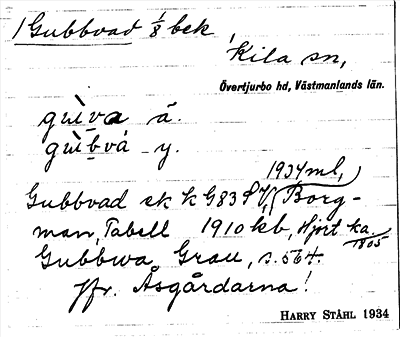 1 Gubbvad 1/8 bek
Kila sn,
Övertjurbo hd, Västmanlands län.
gu̇̀va ä.
gu̇̀bvá y.
1934 ml,
Gubbvad ek k G83 SV, Borg-
man, Tabell 1910 kb, Hjort ka. 1805
Gubbwa Grau, s. 564.
Jfr. Åsgårdarna!
HARRY STÅHL 1934